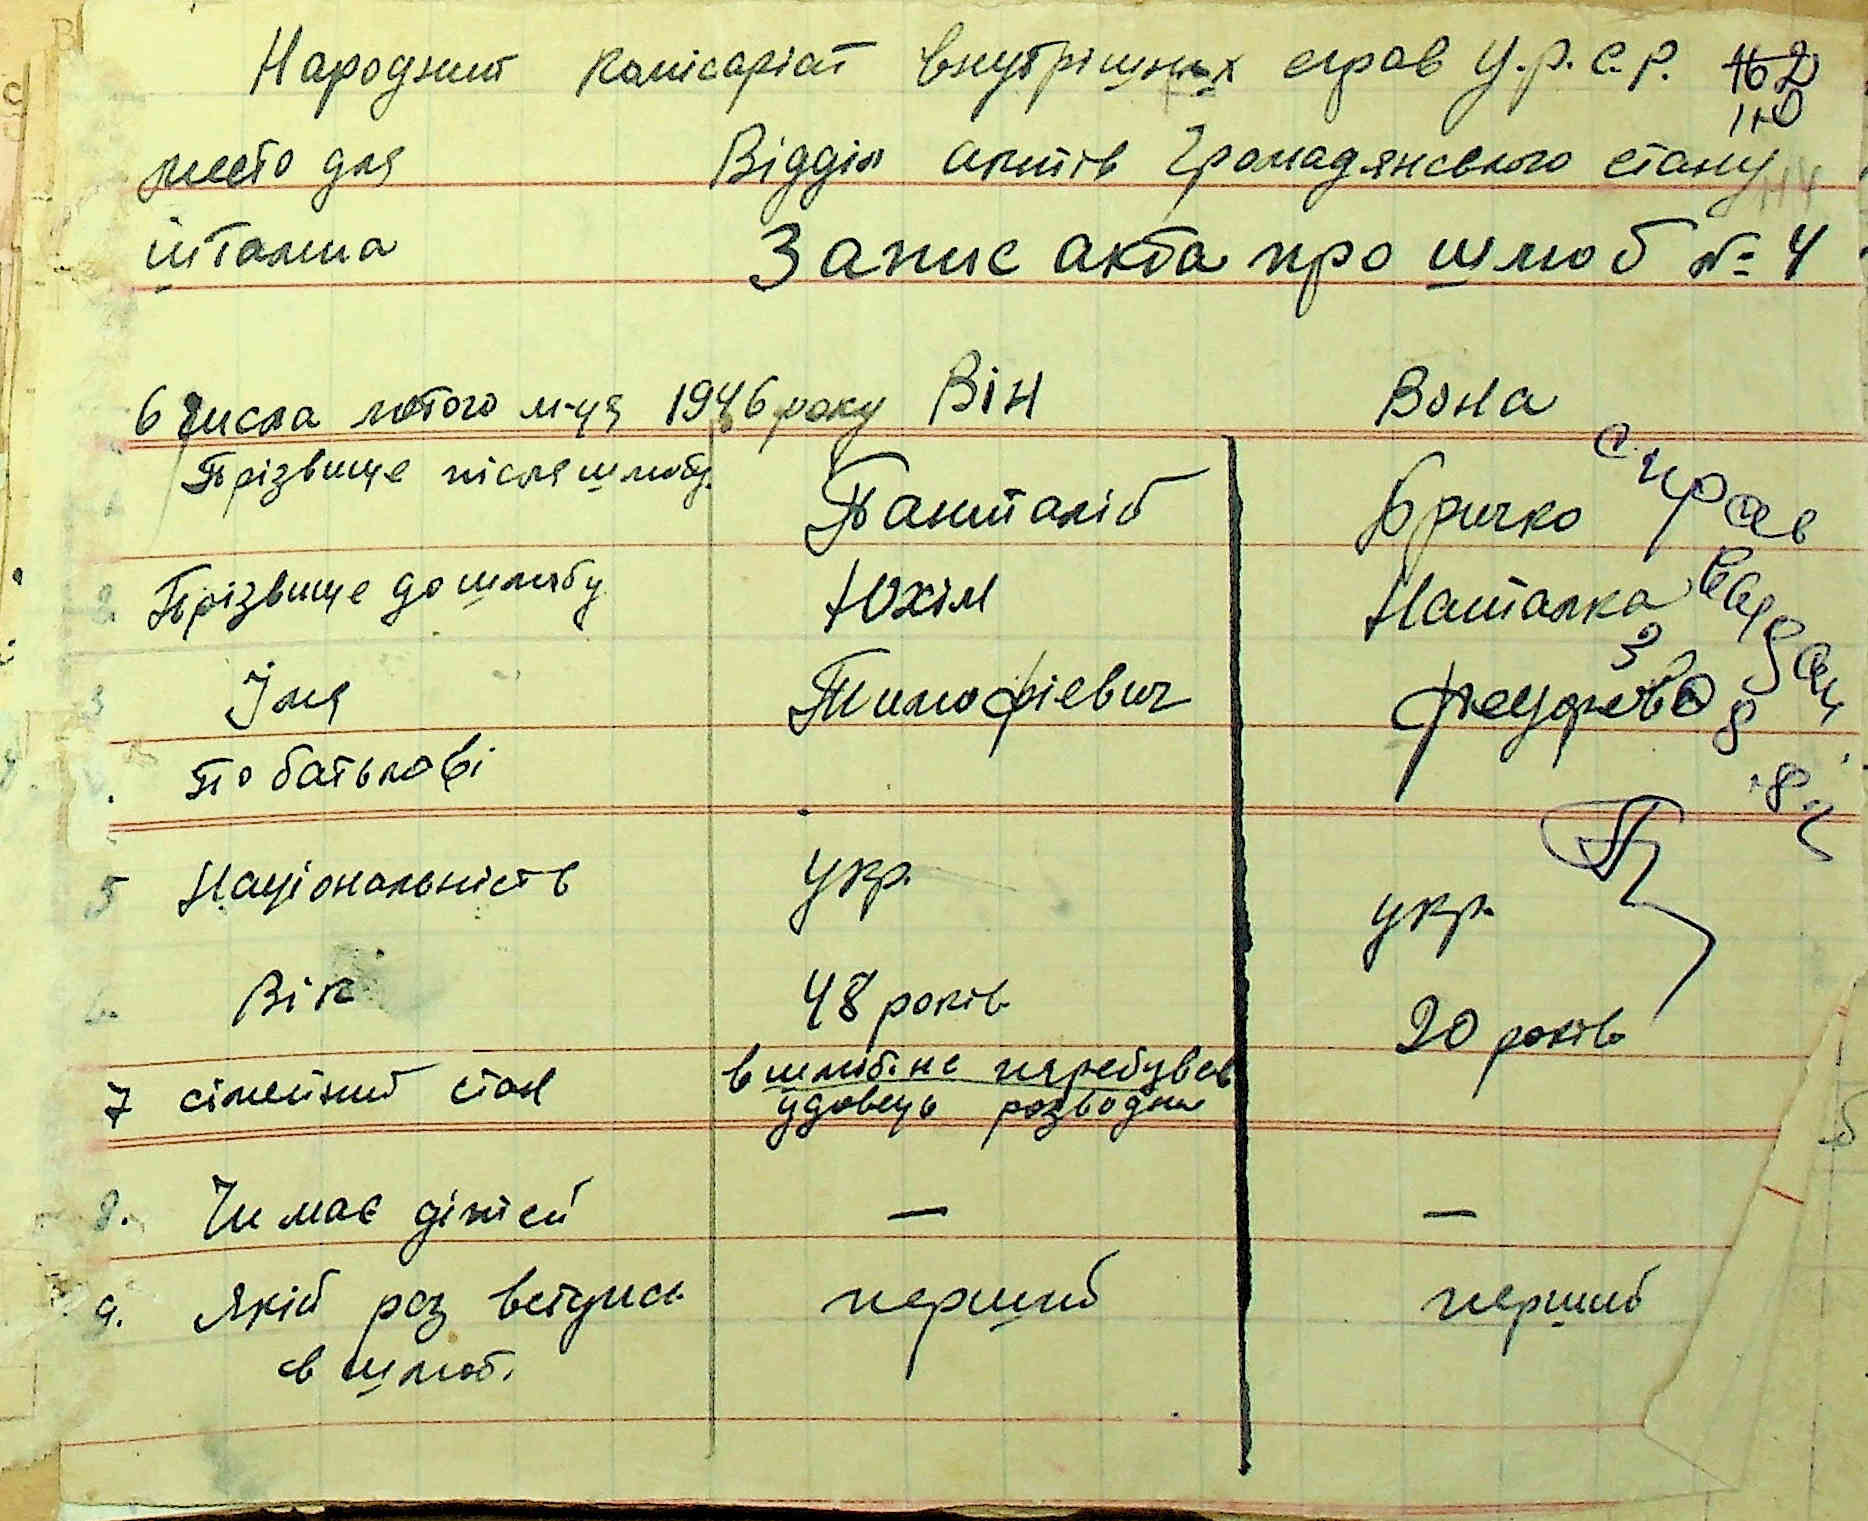 Народний комісаріат внутрішніх справ У.Р.С.Р.
место для Відділ актів Громадянського стану
штампа Запис акта про шлюб № 4
6 числа лютого м-ця 1946 року Він Вона
Прізвище після шлюбу Панталій Бричко
2. Прізвище до шлюбу Юхім Наталка
3 Імя Тимофієвич
По батькові
5 Національність укр. укр.
6. Вік 48 років 20 років
7 сімейний стан в шлюб. не перебував
удовець розводни
8. Чи має дітей — —
9. Якій раз вступає перший перший
в шлюб.